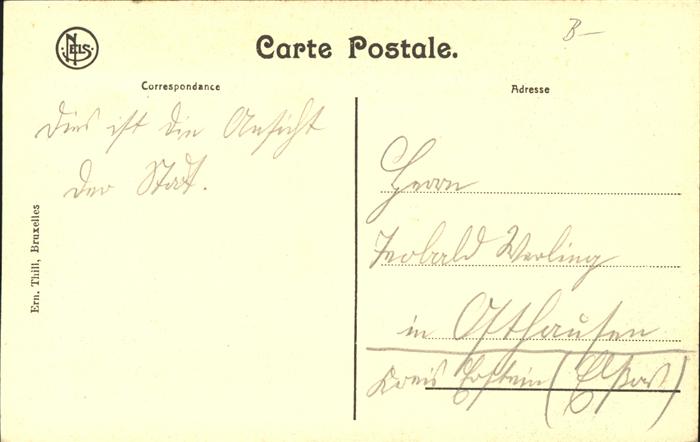 NELS
B-
Carte Postale.
Correspondance
Adresse
Dies ist die Ansicht
der Stadt.
Ern. Thill, Bruxelles
Herrn
Teobald Werling
in Osthausen
Kreis Erstein (Elsas)